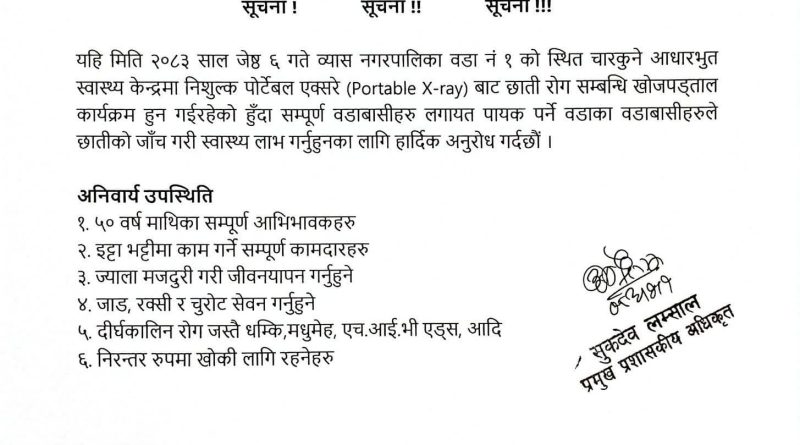 सूचना ! सूचना !! सूचना !!!
यहि मिति २०८३ साल जेष्ठ ६ गते व्यास नगरपालिका वडा नं १ को स्थित चारकुने आधारभुत
स्वास्थ्य केन्द्रमा निशुल्क पोर्टेबल एक्सरे (Portable X-ray) बाट छाती रोग सम्बन्धि खोजपड्ताल
कार्यक्रम हुन गईरहेको हुँदा सम्पूर्ण वडाबासीहरु लगायत पायक पर्ने वडाका वडाबासीहरुले
छातीको जाँच गरी स्वास्थ्य लाभ गर्नुहुनका लागि हार्दिक अनुरोध गर्दछौं ।
अनिवार्य उपस्थिति
१. ५० वर्ष माथिका सम्पूर्ण आभिभावकहरु
२. इट्टा भट्टीमा काम गर्ने सम्पूर्ण कामदारहरु
३. ज्याला मजदुरी गरी जीवनयापन गर्नुहुने
४. जाड, रक्सी र चुरोट सेवन गर्नुहुने
५. दीर्घकालिन रोग जस्तै धम्कि,मधुमेह, एच.आई.भी एड्स, आदि
६. निरन्तर रुपमा खोकी लागि रहनेहरु
सुकदेव लम्साल
प्रमुख प्रशासकीय अधिकृत